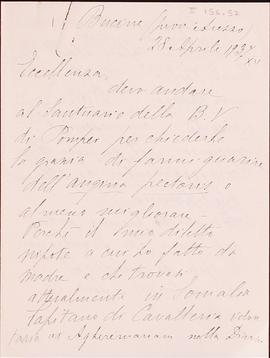 II 156.52
Bucine (provᵃ Arezzo)
28 Aprile 1937
XV
Eccellenza
devo andare
al Santuario della B. V
di Pompei per chiederle
la grazia di farmi guarire
dell'angina pectoris o
almeno migliorare -
Perchè il mio diletto
nipote a cui ho fatto da
Madre e che trovasi
attualmente in Somalia
Capitano di Cavalleria volon
tario ad nella